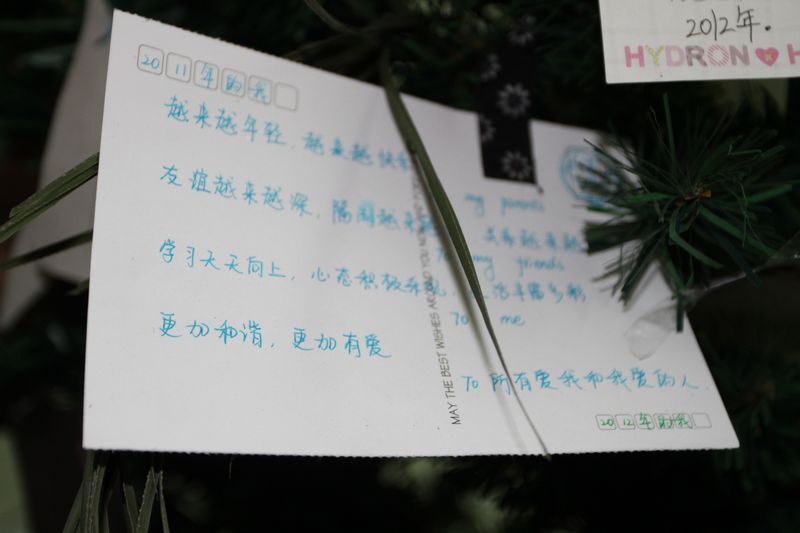 2012年.
HYDRON
2011年的我
越来越年轻,越来越快
my parents
友谊越来越深,隔阂越来越
To my friends
学习天天向上,心态积极乐观,生活丰富多彩
To me
更加和谐,更加有爱
To 所有爱我和我爱的人.
2012年的我
MAY THE BEST WISHES AROUND YOU